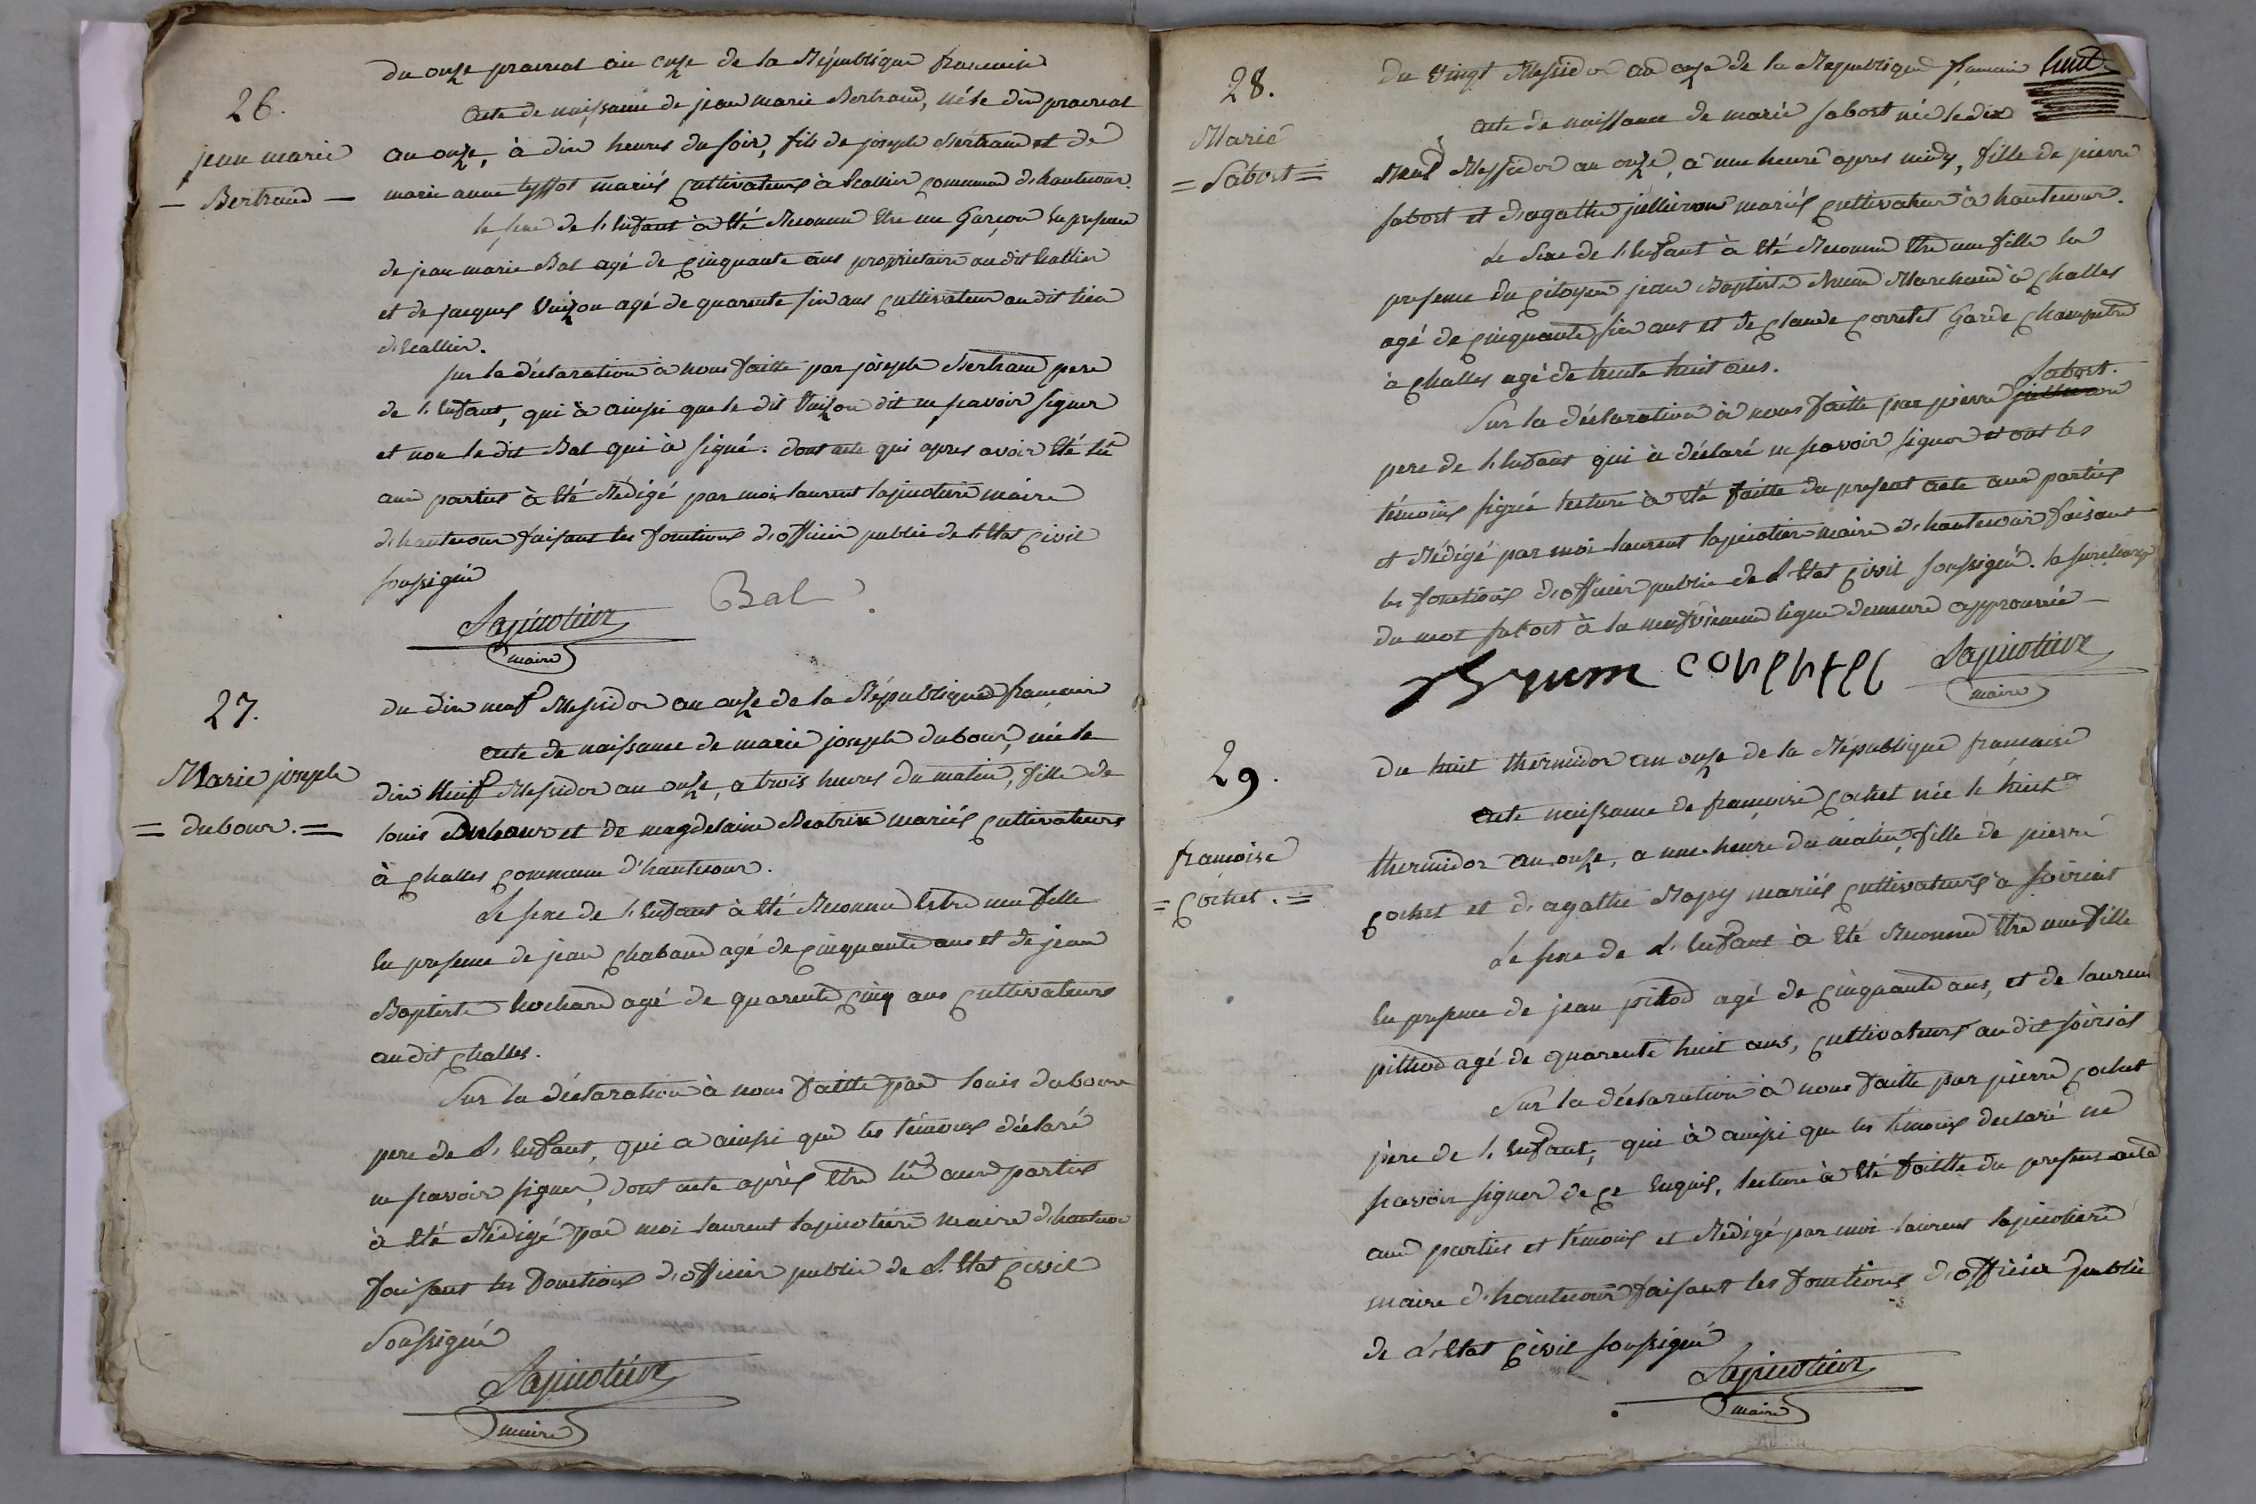 26.
jean marie
Bertrand
du onze prairial an onze de la République francaise
acte de naissance de jean marie Bertrand, né le dix prairial
an onze, à dix heures du soir, fils de joseph Bertrand et de
marie anne tyssot mariés cultivateurs à commune d'hautecour.
le sexe de l'Enfant à été Reconnu être un Garçon En presence
de jean marie Bal agé de cinquante ans proprietaire au dit
et de jacques agé de quarente six ans cultivateur au dit lieu

sur la déclaration à nous faitte par joseph Bertrand pere
de l'Enfant, qui à ainsi que le dit dit ne scavoir signer
et non le dit Bal qui à signé. dont acte qui apres avoir été lû
aux parties à été Rédigé par moi laurent lapicotiere maire
d'hautecour faisant les fonctions d'officier public de l'Etat civil
soussigné
Lapicotiere Bal
maire
27.
Marie joseph
= dubour. =
du dix neuf Messidor an onze de la République francaise
acte de naissance de marie joseph dubour, née le
dix Neuf Messidor an onze, a trois heures du matin, fille de
louis Dubour et de magdelaine Beatrix mariés cultivateurs
à challes commune d'hautecour.
Le sexe de l'Enfant à été Reconnu Estre une fille
En presence de jean chabaud agé de cinquante ans et de jean
Baptiste agé de quarente cinq ans cultivateurs
au dit challes.
Sur la déclaration à nous faitte par louis dubour
pere de L'Enfant, qui a ainsi que les témoins déclaré
ne scavoir signer, dont acte après être lû aux parties
à été Rédigé par moi laurent lapicotiere maire d'hautecour
faisant les fonctions d'officier public de L'Etat civil
Soussigné
Lapicotiere
maire
28.
Marie
= Sabost =
Du vingt Messidor an onze de la Republique francaise huit
acte de naissance de marie sabost née le dix
Neuf Messidor an onze, a une heure apres midy, fille de pierre
sabost et d'agathe mariés cultivateur à hautecour.
Le Sexe de l'Enfant à été Reconnu être une fille En
presence du citoyen jean Baptiste Brum Marchand à challes
agé de cinquante six ans et de claude Garde champetre
à challes agé de trente huit ans.
Sabost.
Sur la déclaration à nous faitte par pierre
pere de l'Enfant qui à déclaré ne scavoir signer et ont les
témoins signé lecture à été faitte du present acte aux parties
et Rédigé par moi laurent lapicotiere maire d'hautecour faisant
les fonctions d'officier public de L'Etat civil soussigné. la surcharge
du mot sabost à la neufvieme ligne demeure approuvée
Brum Lapicotiere
maire
29.
francoise
= cochet. =
Du huit thermidor an onze de la République francaise
acte naissance de françoise cochet née le huit
thermidor an onze, a une heure du matin, fille de pierre
cochet et d'agathe Mapy mariés cultivateurs à soiriat
Le sexe de L'Enfant à été Reconnu être une fille
En presence de jean pittod agé de cinquante ans, et de laurent
pittiod agé de quarente huit ans, cultivateurs au dit soiriat
Sur la déclaration à nous faitte par pierre cochet
père de l'Enfant, qui à ainsi que les témoins declaré ne
scavoir signer de ce Enquis, lecture à été faitte du present acte
aux parties et témoins et Rédigé par moi laurent lapicotiere
maire d'hautecour faisant les fonctions d'officier public
de L'Etat civil soussigné
Lapicotiere
maire